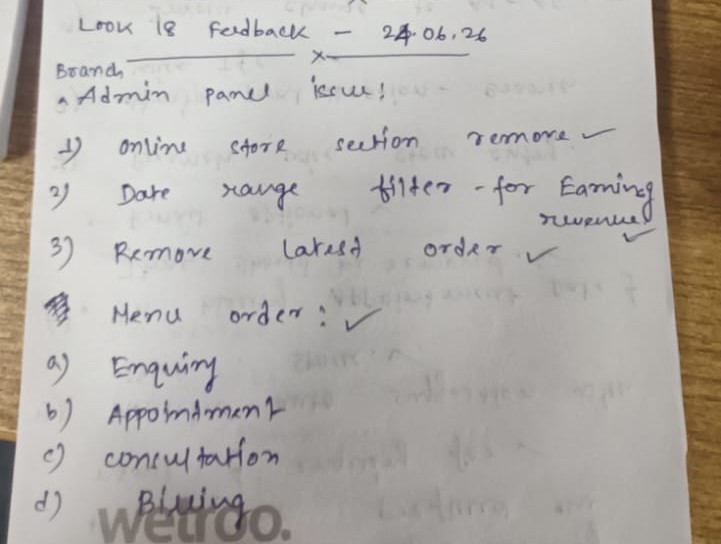 Look 18 Feedback - 24.06.26
x
Branch
Admin panel issue!
1) online store section remove ✓
2) Date range filter - for Earning
revenue ✓
3) Remove latest order ✓
Menu order : ✓
a) Enquiry
b) Appointment
c) consultation
d) Billing
wetroo.